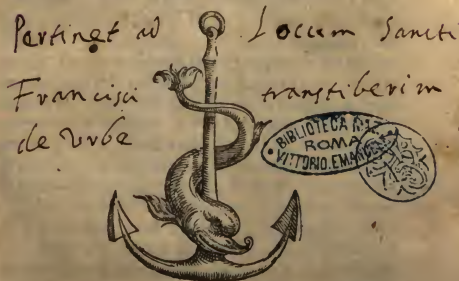 Pertinet ad Locum Sancti
Francisci transtiberim
de Urbe
BIBLIOTECA
ROMA
VITTORIO.EMAN